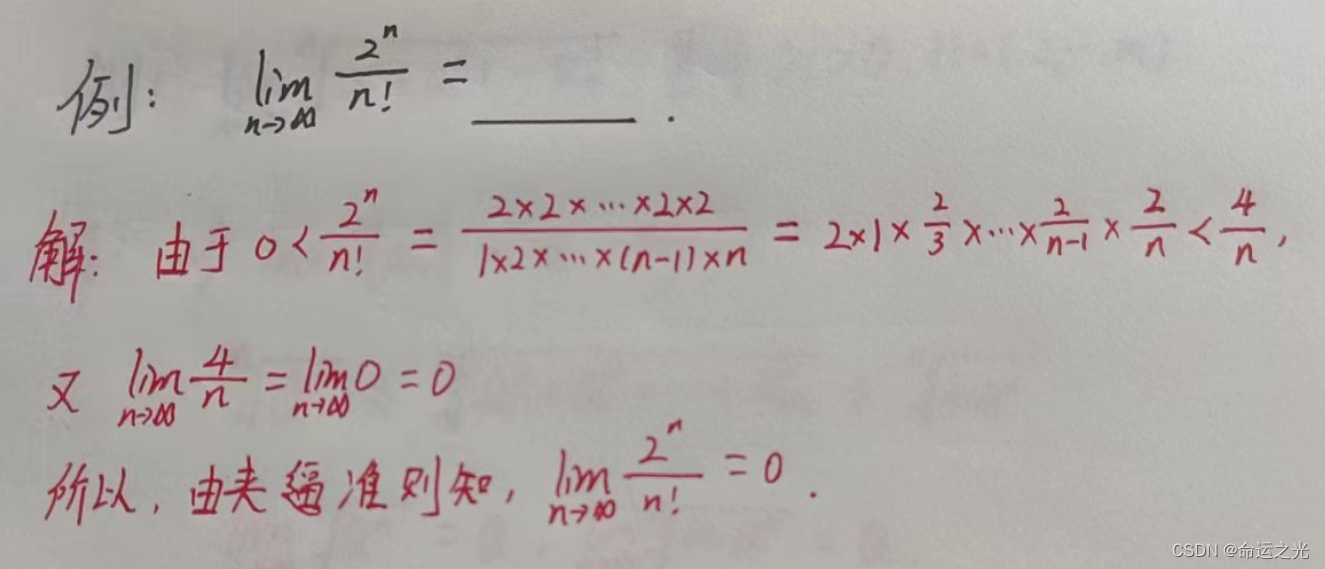 例: lim_{n→∞} 2^n/n! = ______ .
解: 由于 0 < 2^n/n! = (2×2×⋯×2×2)/(1×2×⋯×(n-1)×n) = 2×1×2/3×⋯×2/(n-1)×2/n < 4/n,
又 lim_{n→∞} 4/n = lim_{n→∞} 0 = 0
所以, 由夹逼准则知, lim_{n→∞} 2^n/n! = 0 .
CSDN @命运之光